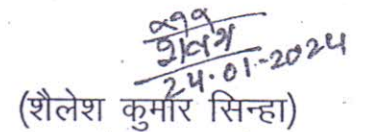 शैलेश
24.01.2024
(शैलेश कुमार सिन्हा)